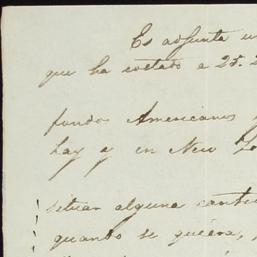 Es adjunta u
que ha costado a 25. 2
fundo Americanos
hay y en New Yo
situar alguna canti
quando se quiera,